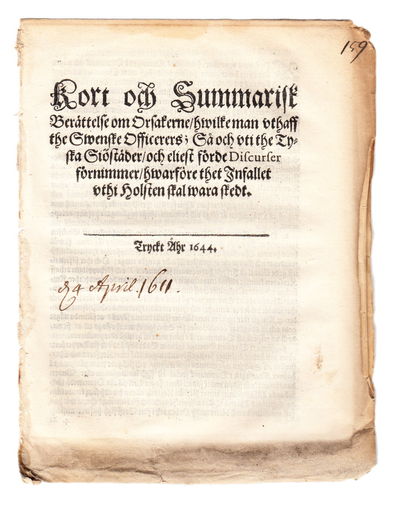 159
Kort och Summarisk
Berättelse om Orsakerne/hwilke man vthaff
the Swenske Officerers; Så och vti the Ty-
ska Siöstäder/och eliest förde Discurser
förnimmer/hwarföre thet Infallet
vthi Holsten skal wara skedt.
Tryckt Åhr 1644.
4 April.